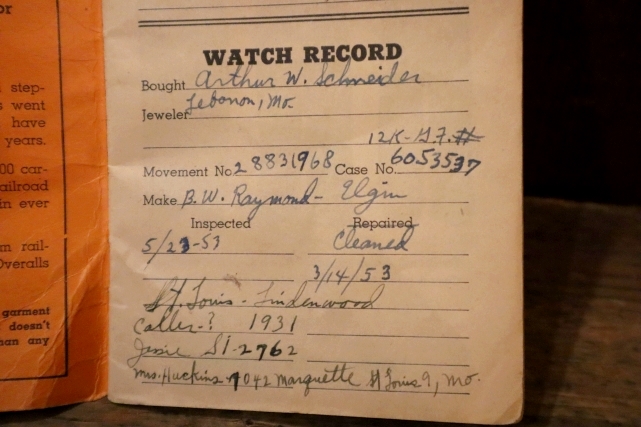 or
step-
s went
have
years.
00 car-
ailroad
in ever
m rail-
Overalls
garment
doesn't
han any
WATCH RECORD
Bought Arthur W. Schneider
Jeweler Lebanon, Mo.
12K-G.F.
Movement No 28831968 Case No. 6053537
Make B.W. Raymond - Elgin
Inspected Repaired
5/23-53 Cleaned
3/14/53
St. Louis - Lindenwood
Caller-? 1931
Jessie S1-2762
Mrs. Huckins 7042 Marquette St Louis 9, Mo.